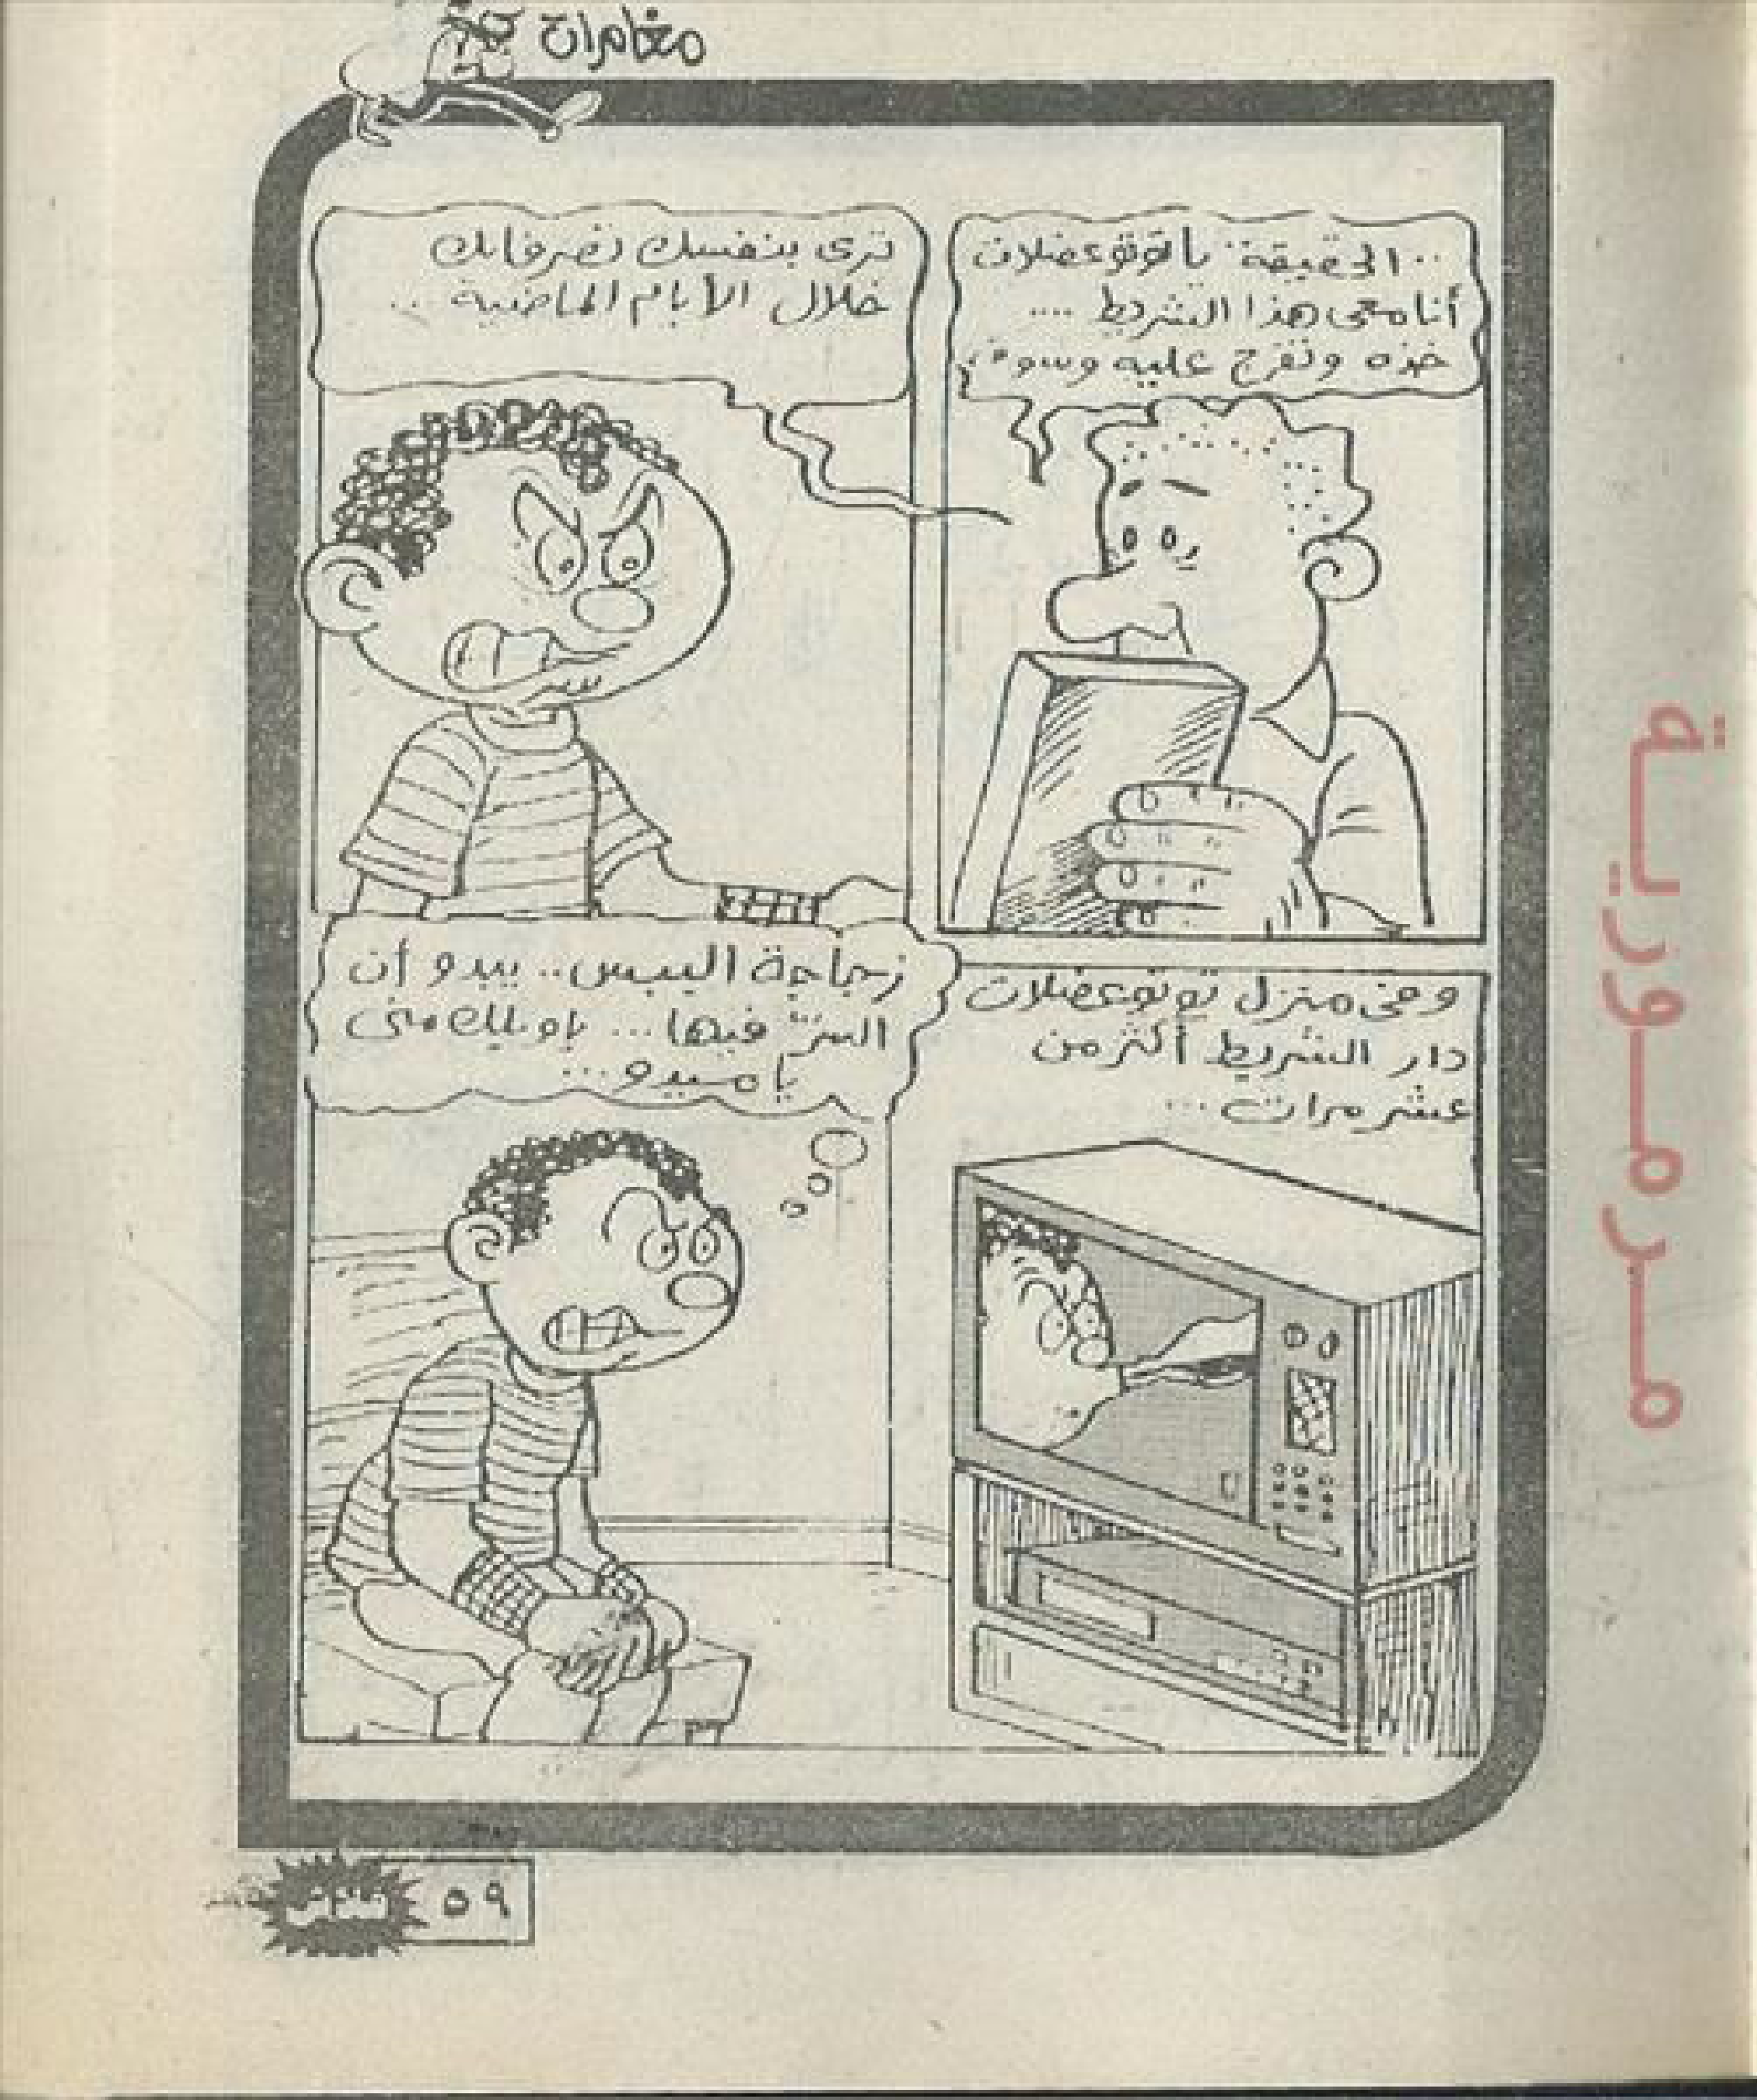 مغامرات
.. الحقيقة: يا توتو عضلات
أنا معى هذا الشريط ....
خذه وتفرج عليه وسوف
ترى بنفسك تصرفاتك
خلال الأيام الماضية ..
وفى منزل توتو عضلات
دار الشريط أكثر من
عشر مرات ...
زجاجة الببس .. يبدو أن
السرّ فيها ... ياويلك منى
يا ميدو ...
٥٩
مرمورية